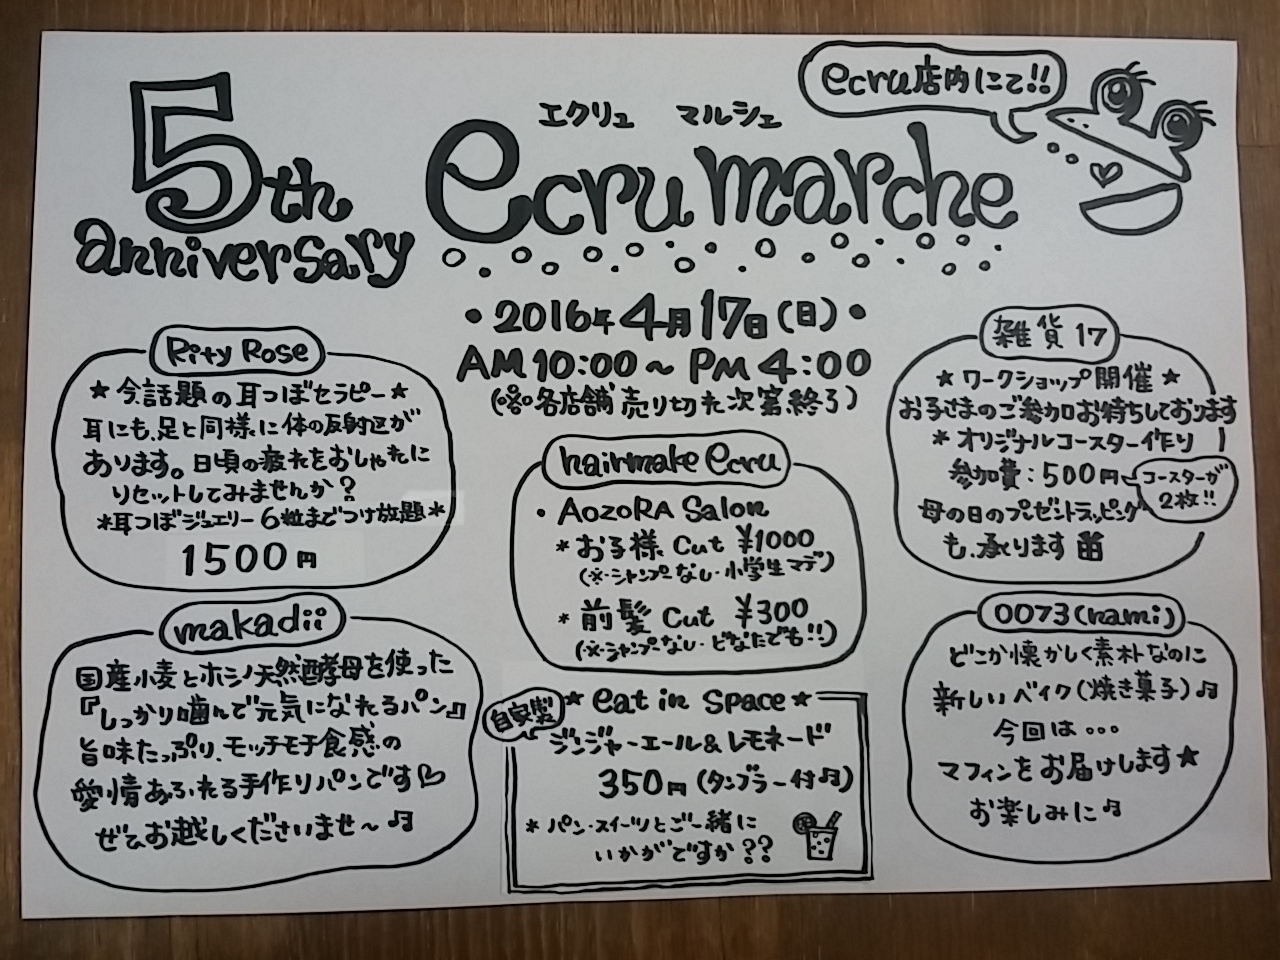 5th
anniversary
エクリュ マルシェ
ecru marche
ecru店内にて!!
・2016年4月17日(日)・
AM10:00～PM4:00
(※各店舗売り切れ次第終了)
Rity Rose
★今話題の耳つぼセラピー★
耳にも、足と同様に体の反射区が
あります。日頃の疲れをおしゃれに
リセットしてみませんか?
*耳つぼジュエリー6粒までつけ放題*
1500円
makadii
国産小麦とホシノ天然酵母を使った
『しっかり噛んで元気になれるパン』
旨味たっぷり、モッチモチ食感の
愛情あふれる手作りパンです♡
ぜひお越しくださいませ～♫
hairmake ecru
・AozoRA Salon
*お子様 Cut ¥1000
(※シャンプーなし・小学生マデ)
*前髪 Cut ¥300
(※シャンプーなし・どなたでも!!)
自家製
★eat in Space★
ジンジャーエール&レモネード
350円(タンブラー付♫)
*パン・スイーツとご一緒に
いかがですか??
雑貨 17
★ワークショップ開催★
お子さまのご参加お待ちしております
*オリジナルコースター作り
参加費:500円
コースターが
2枚!!
母の日のプレゼントラッピング
も、承ります
0073(nami)
どこか懐かしく素朴なのに
新しいベイク(焼き菓子)♫
今回は...
マフィンをお届けします★
お楽しみに♫